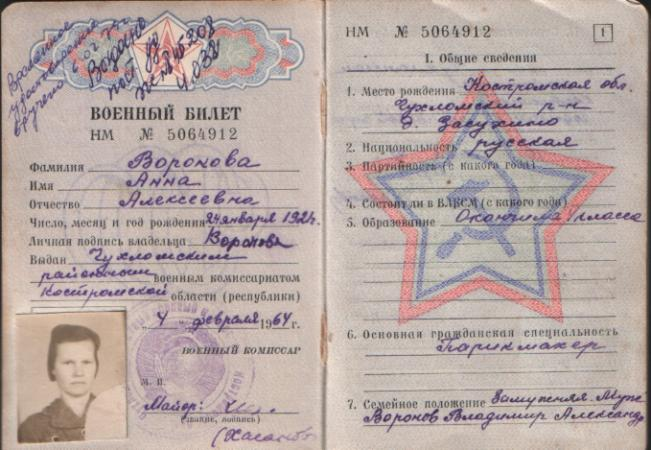 Временное
удостоверение
вручено
ВОЕННЫЙ БИЛЕТ
НМ № 5064912
Фамилия Воронова
Имя Анна
Отчество Алексеевна
Число, месяц и год рождения 24 января 1924.
Личная подпись владельца Воронова
Выдан Чухломским
районным военным комиссариатом
Костромской области (республики)
„4" февраля 1964 г.
ВОЕННЫЙ КОМИССАР
М. П.
Майор:
(звание, подпись)
НМ № 5064912 1
I. Общие сведения
1. Место рождения Костромская обл.
Чухломский р-н
д. Засухино
2. Национальность русская
3. Партийность (с какого года)
4. Состоит ли в ВЛКСМ (с какого года)
5. Образование Окончила класса
6. Основная гражданская специальность
Парикмахер
7. Семейное положение Замужняя. Муж
Воронов Владимир Александр